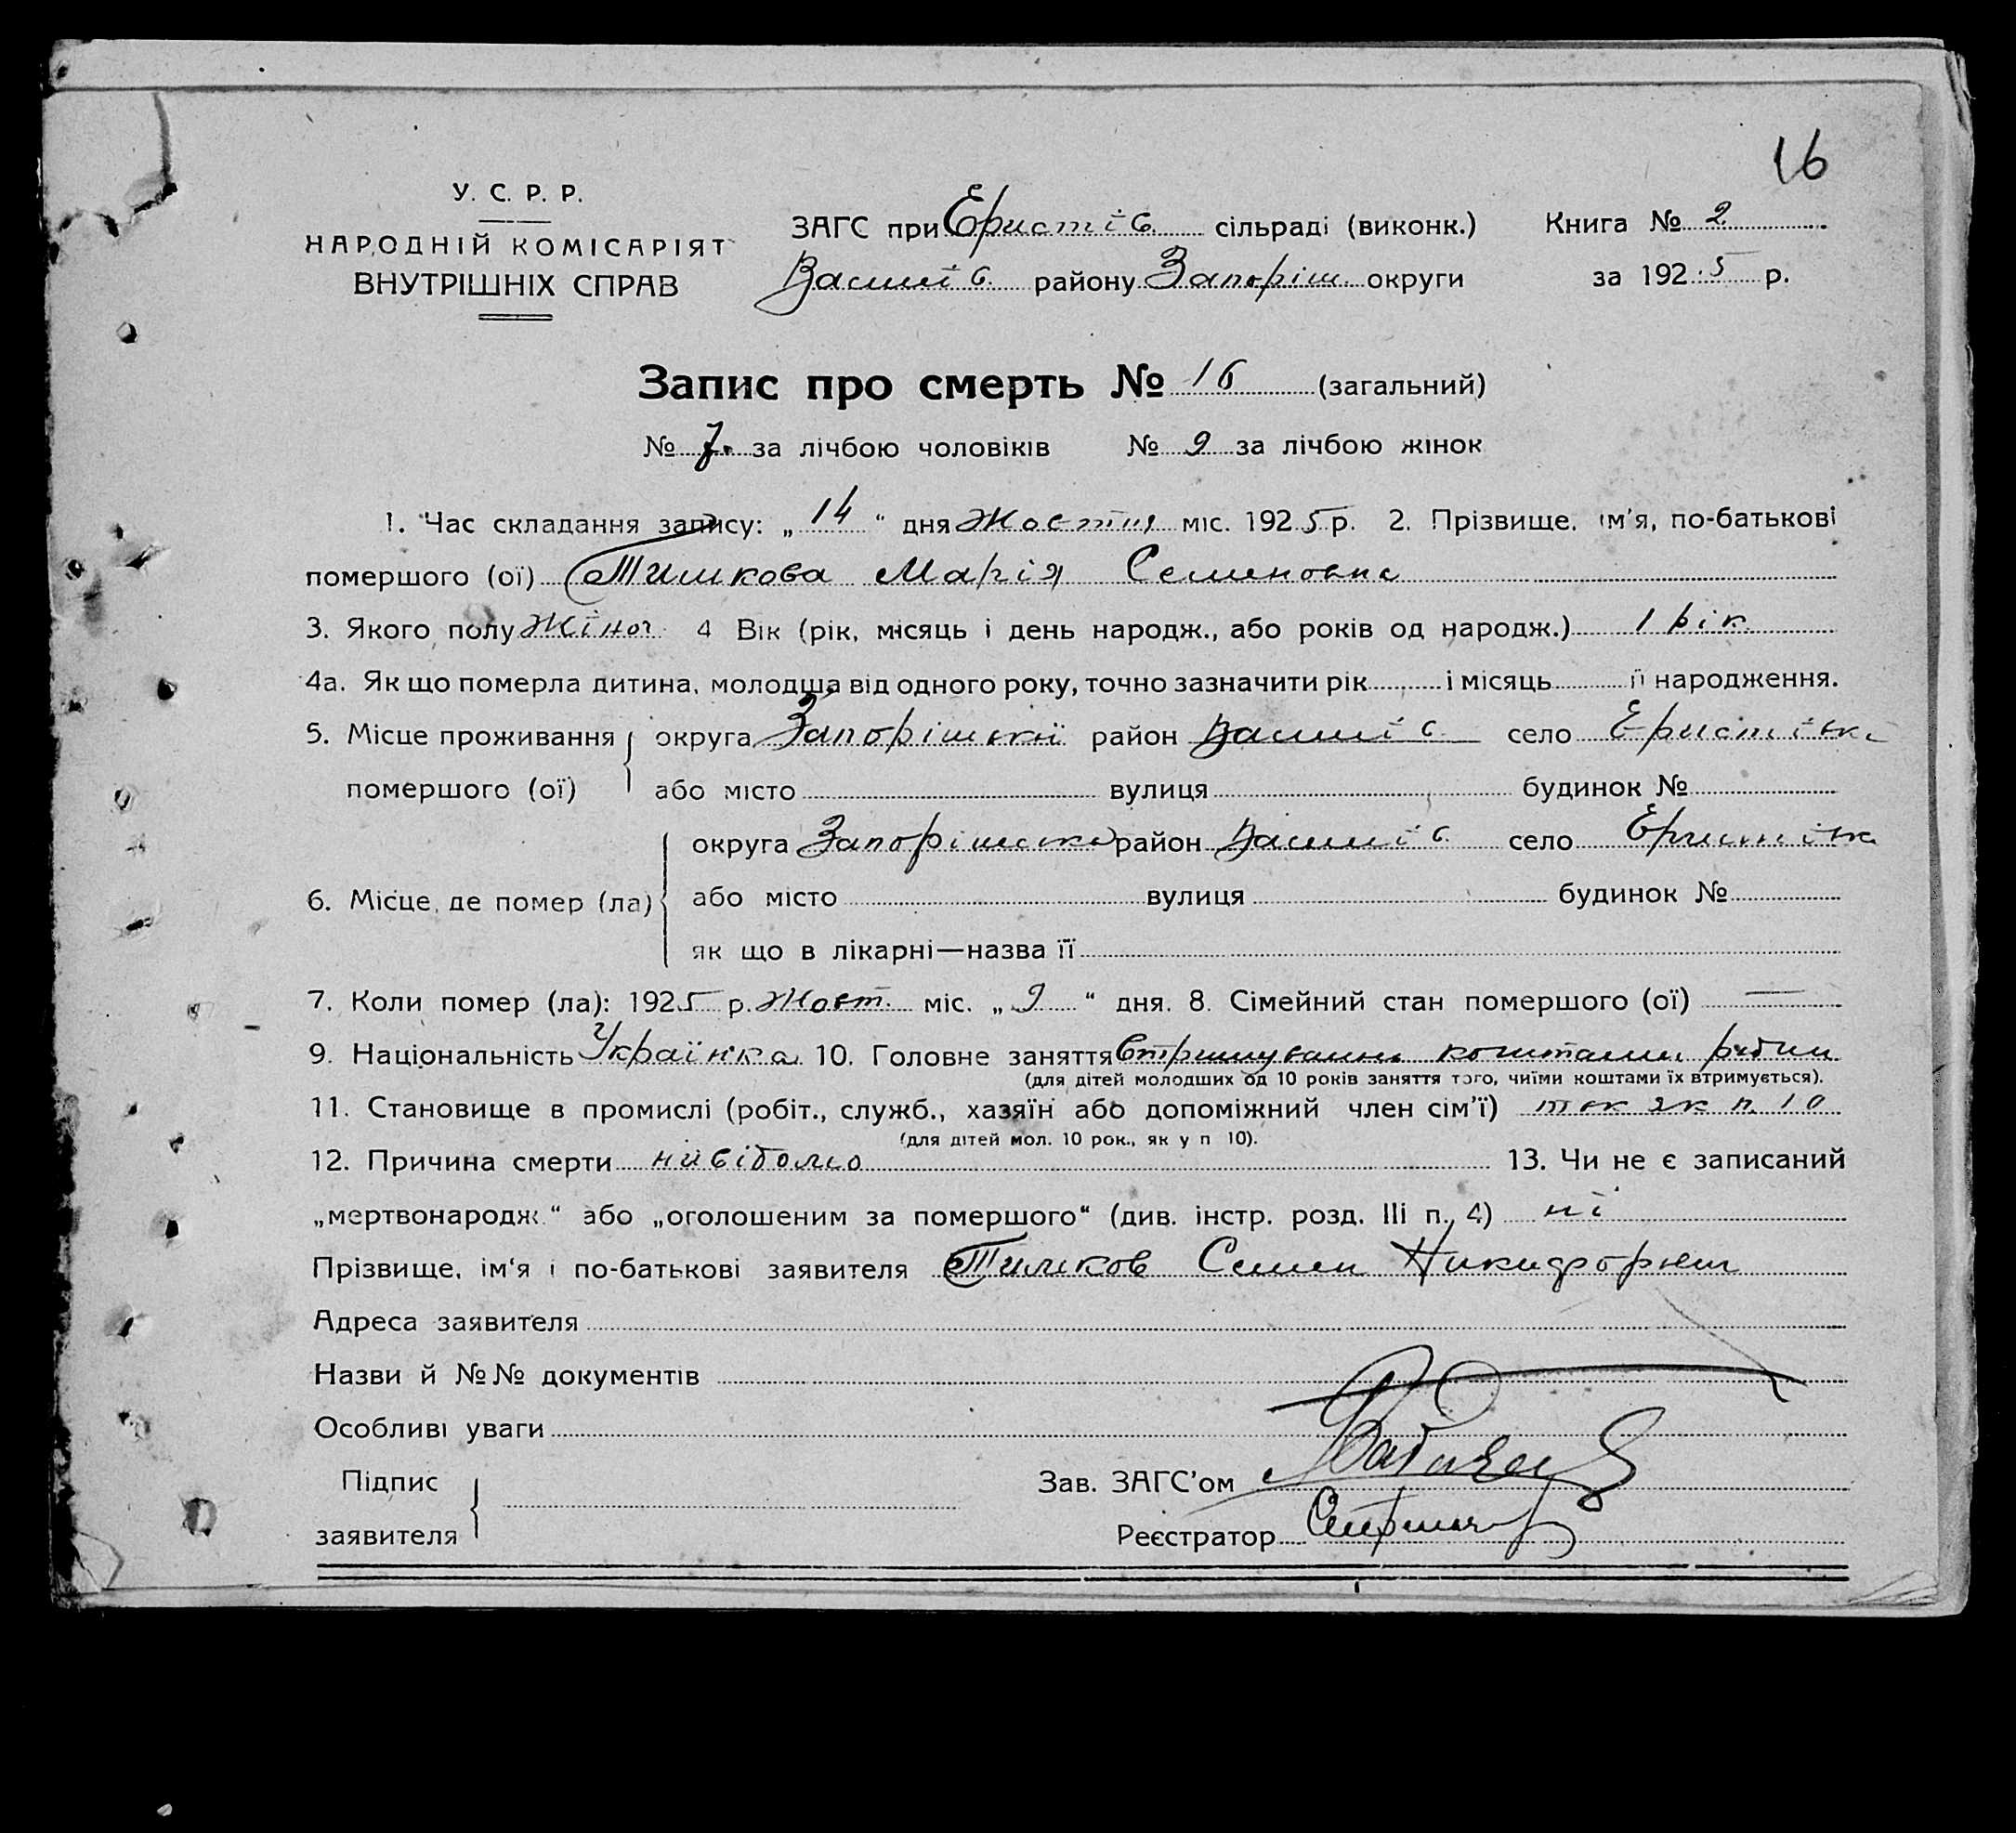 16
У. С. Р. Р.
НАРОДНІЙ КОМІСАРІЯТ
ВНУТРІШНІХ СПРАВ
ЗАГС при Еристів. сільраді (виконк.) Книга № 2
Василів. району Запоріш. округи за 1925 р.
Запис про смерть № 16 (загальний)
№ 7. за лічбою чоловіків № 9 за лічбою жінок
1. Час складання запису: „ 14 “ дня Жовтня міс. 1925 р. 2. Прізвище, ім'я, по-батькові
помершого (ої) Тимкова Марія Семеновна
3. Якого полу жіноч 4 Вік (рік, місяць і день народж., або років од народж.) 1 рік
4а. Як що померла дитина, молодша від одного року, точно зазначити рік і місяць її народження.
5. Місце проживання округа Запорішкій район Василів село Еристівка
помершого (ої) або місто вулиця будинок №
округа Запорішська район Василів село Еристівка
6. Місце, де помер (ла) або місто вулиця будинок №
як що в лікарні—назва її
7. Коли помер (ла): 1925 р. Жовт. міс. „ 9 “ дня. 8. Сімейний стан помершого (ої) —
9. Національність Українка 10. Головне заняття коштами
(для дітей молодших од 10 років заняття того, чиїми коштами їх втримується).
11. Становище в промислі (робіт., служб., хазяїн або допоміжний член сім'ї) так як п. 10
(для дітей мол. 10 рок., як у п 10).
12. Причина смерти невідомо 13. Чи не є записаний
„мертвонародж.“ або „оголошеним за помершого“ (див. інстр. розд. III п. 4) ні
Прізвище, ім'я і по-батькові заявителя Тимков Семен Никифорович
Адреса заявителя
Назви й №№ документів
Особливі уваги
Підпис
Зав. ЗАГС'ом
заявителя Реєстратор